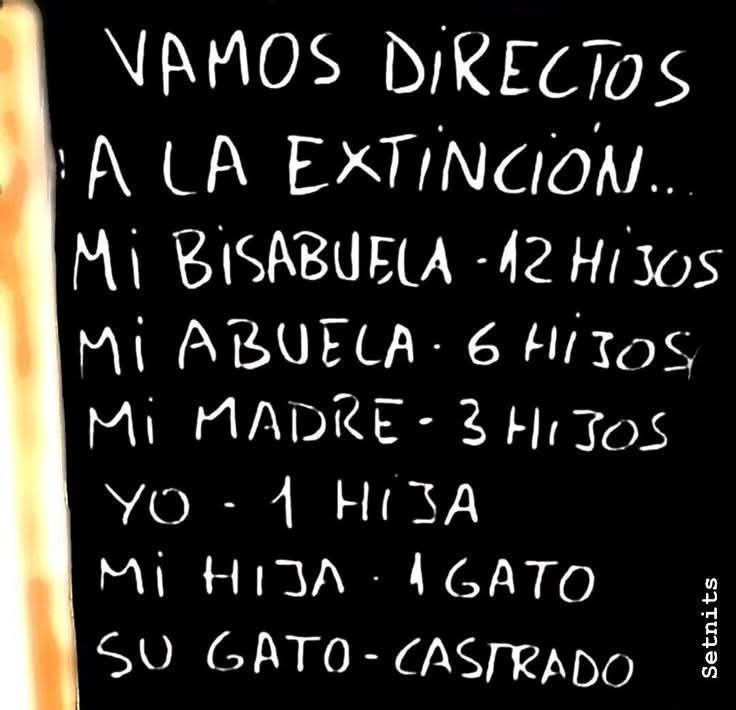 VAMOS DIRECTOS
A LA EXTINCIÓN...
MI BISABUELA - 12 HIJOS
MI ABUELA - 6 HIJOS
MI MADRE - 3 HIJOS
YO - 1 HIJA
MI HIJA - 1 GATO
SU GATO - CASTRADO
Setnits